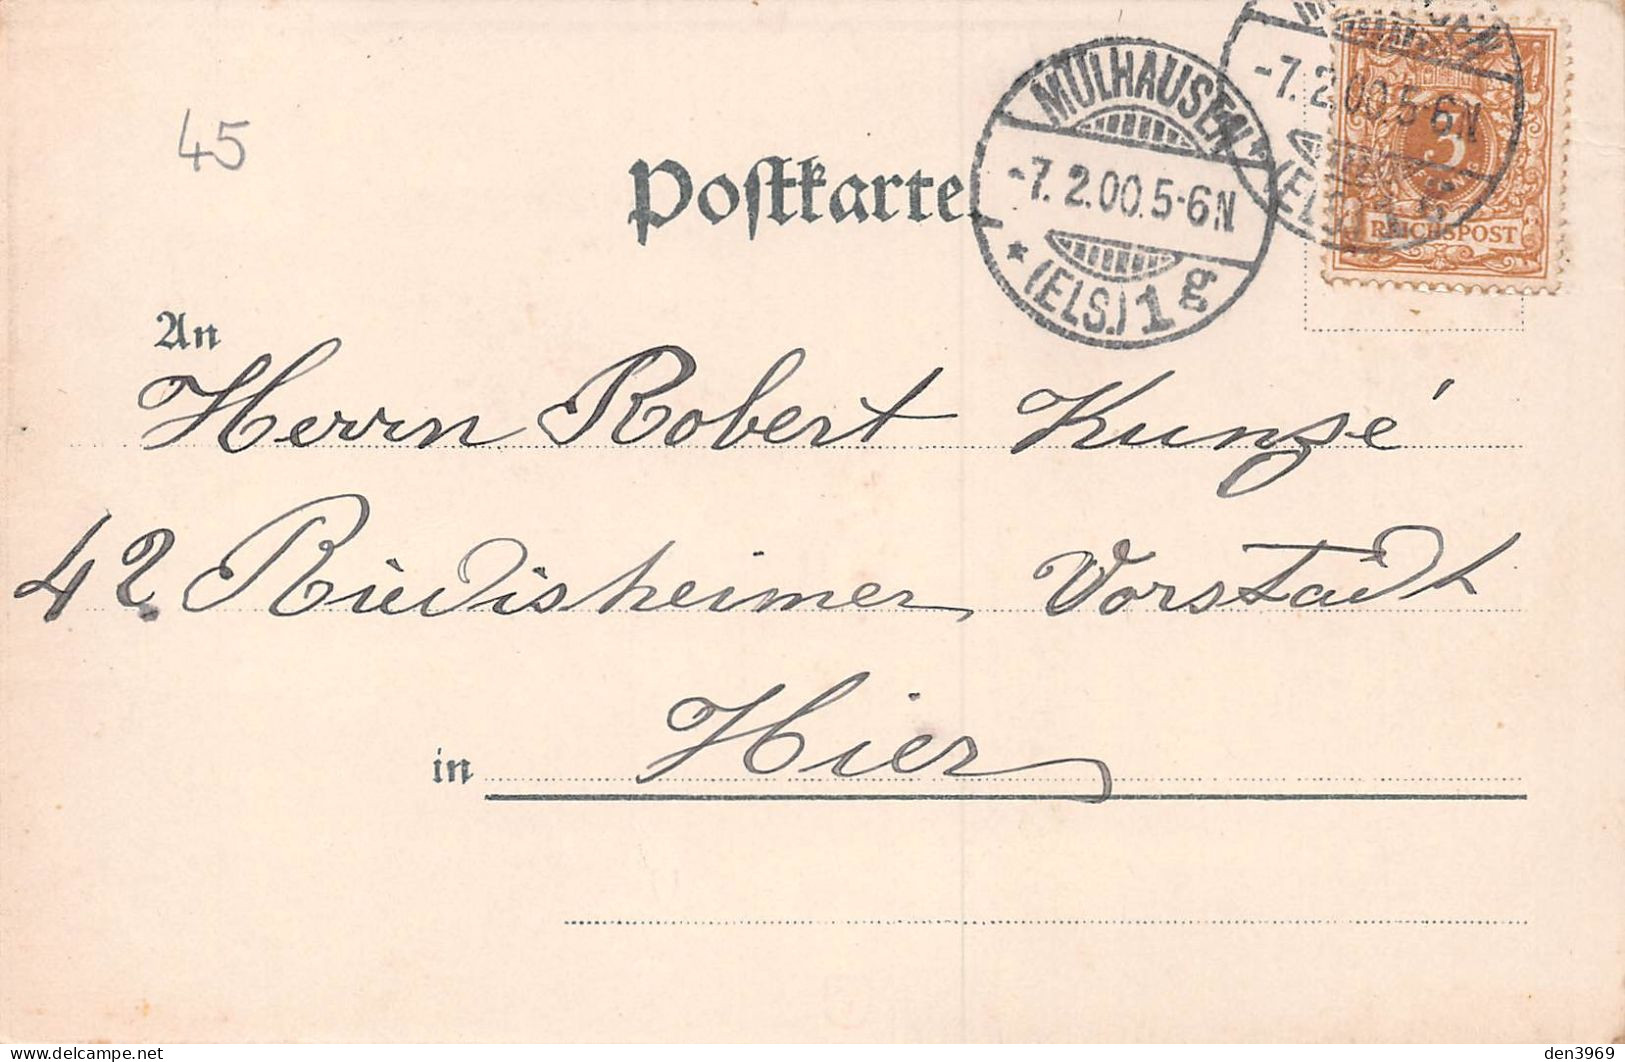 45
Postkarte
MÜLHAUSEN
-7.2.00.5-6N
(ELS.) 1 g
-7.2.00.5-6N
(ELS.)
3
REICHSPOST
An
Herrn Robert Kunzé
42 Riedisheimer Vorstadt
in Hier
den3969